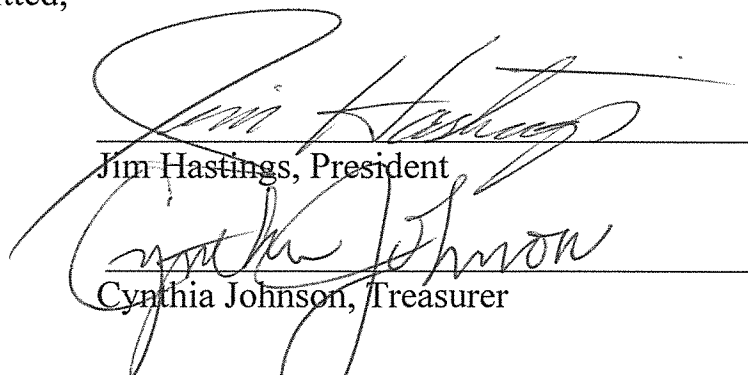 Jim Hastings
Jim Hastings, President
Cynthia Johnson
Cynthia Johnson, Treasurer